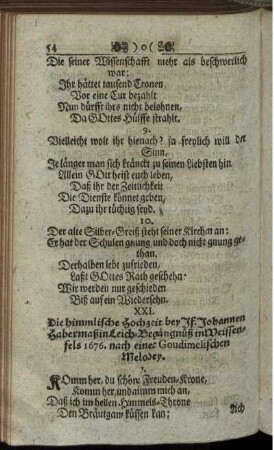 54
) o (
Die seiner Wissenschafft mehr als beschwerlich
war:
Ihr hättet tausend Cronen
Vor eine Cur bezahlt
Nun dürfft ihrs nicht belohnen,
Da GOttes Hülffe strahlt.
9.
Vielleicht wolt ihr hienach? ja freylich will der
Sinn,
Je länger man sich kränckt zu seinen Liebsten hin
Allein GOtt heist euch leben,
Daß ihr der Zeitlichkeit
Die Dienste könnet geben,
Dazu ihr tüchtig seyd.
10.
Der alte Silber-Greiß steht seiner Kirchen an:
Er hat der Schulen gnung und doch nicht gnung ge-
than.
Derhalben lebt zufrieden,
Laßt GOttes Rath geschehn-
Wir werden nur geschieden
Biß auf ein Wiedersehn.
XXI.
Die himmlische Hochzeit bey Jf. Johannen
Habermaßin Leich-Begängnüß in Weissen-
fels 1676. nach einer Goudimelischen
Melodey.
1.
KOmm her, du schöne Freuden-Krone,
Komm her, und nimm mich an,
Daß ich im hellen Himmels-Throne
Den Bräutgam küssen kan;
Ach